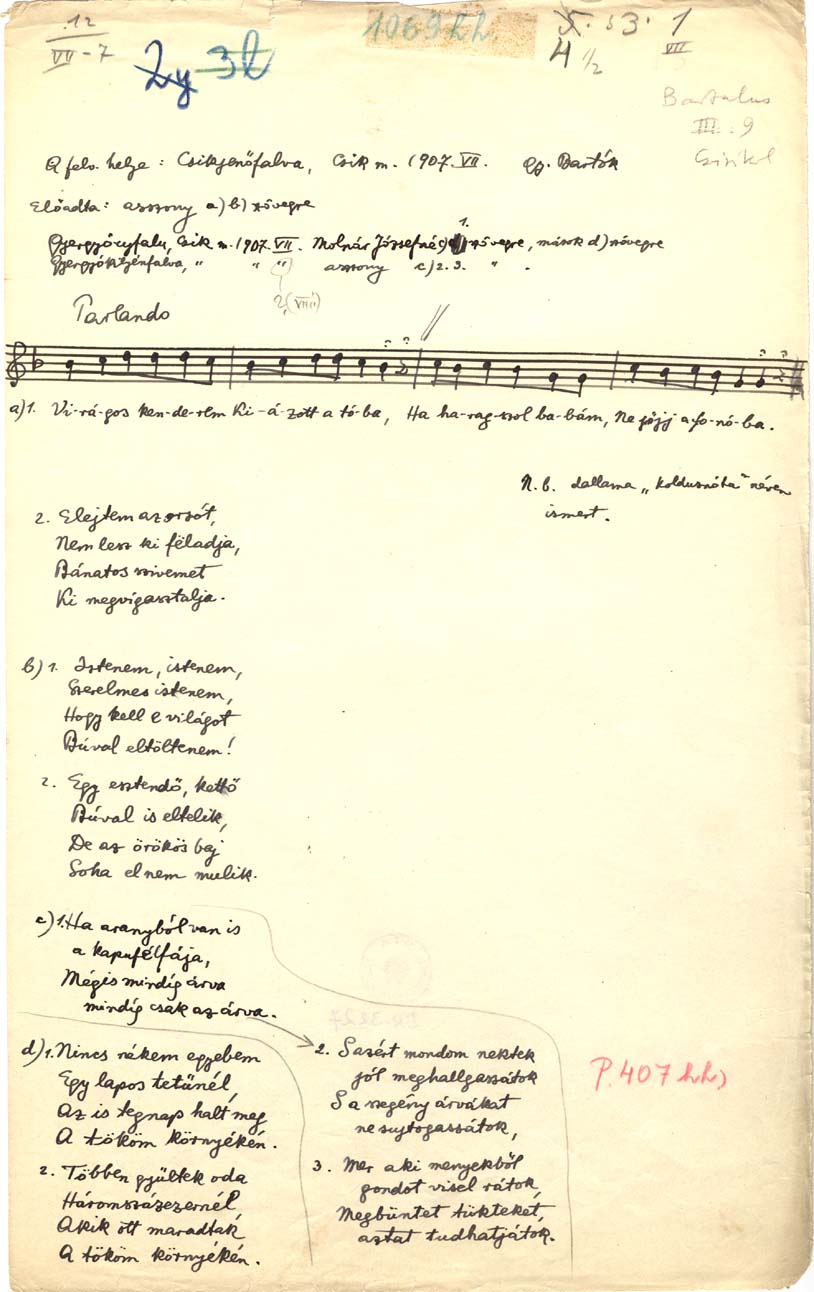 12
VII-7
1069 hh.
X. 53. 1
4 1/2
VII
Bartalus
III. 9
A felv. helye: Csikjenőfalva, Csik m. 1907. VII. gy. Bartók
Előadta: asszony a) b) szövegre
Gyergyóújfalu, Csik m. 1907. VII. Molnár Józsefné c) 1. szövegre, mások d) szövegre
" " " asszony c) 2. 3. " .
?(VIII)
Parlando
a) 1. Vi-rá-gos ken-de-rem Ki-á-zott a tó-ba, Ha ha-rag-szol ba-bám, Ne jőjj a fo-nó-ba.
N.b. dallama „koldusnóta" néven
ismert.
2. Elejtem az orsót,
Nem lesz ki féladja,
Bánatos szivemet
Ki megvigasztalja.
b) 1. Istenem, istenem,
Szerelmes istenem,
Hogy kell e világot
Búval eltöltenem!
2. Egy esztendő, kettő
Búval is eltelik,
De az örökös baj
Soha el nem mulik.
c) 1. Ha aranyból van is
a kapufélfája,
Mégis mindig árva
mindig csak az árva.
d) 1. Nincs nékem egyebem
Egy lapos tetünél,
Az is tegnap halt meg
A tököm környékén.
2. Többen gyültek oda
Háromszázezernél,
Akik ott maradtak
A tököm környékén.
2. Sazért mondom nektek
jól meghallgassátok
S a szegény árvákat
ne sujtogassátok,
3. Mer aki menyekből
gondot visel rátok,
Megbüntet tükteket,
aztat tudhatjátok.
P. 407 hh)